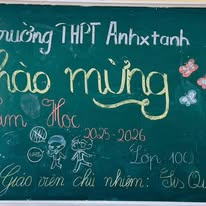 Trường THPT Anhxtanh
Chào mừng
Năm Học
2025-2026
Lớp 10C
Giáo viên chủ nhiệm: